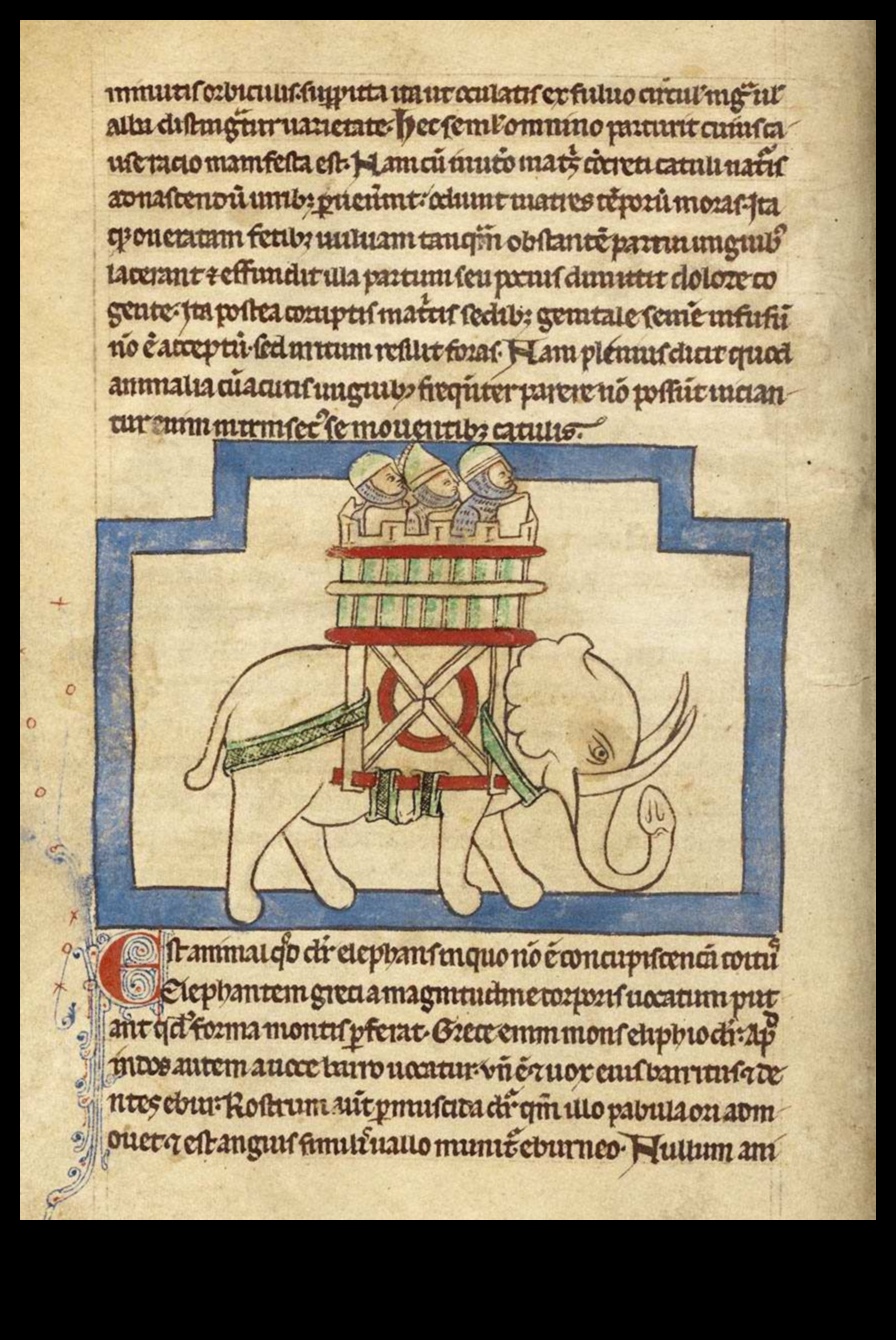 minutis orbiculis. suppicta ita ut oculatis ex fuluo circul' nig̃ ul'
alba distinguit̃ uarietate. Hec semł omnino parturit cuius ca
use racio manifesta est. Nam cũ in utō mat̃ꝫ cōcreti catuli nat̃is
ad nascendũ uiribꝫ ꝑueniũt: odiunt matres tēporũ moras. Ita
ꝙ oneratam fetibꝫ uuluam tanqm̃ obstantē partui unguibꝰ
lacerant ⁊ effundit illa partum seu pocius dimittit dolore co
gente. Ita postea coruptis mat̃cis sedibꝫ genitale semē infusũ
nō ē acceptũ. sed irritum resilit foras. Nam plenius dicit quod
animalia cũ acutis unguibꝫ freqñter parere nō possũt uician
tur enim intrinsecꝰ se mouentibꝫ catulis.
Est animal qd̕ dr̃ elephans in quo nō ē concupiscencia coitũ
Elephantem greci a magnitudine corporis uocatum put
ant qd̕ forma montis ꝑferat. Grece enim mons eliphio dr̃: Apᵈ
indos autem a uoce barro uocatur. vñ ē ⁊ uox eius barritus ⁊ de
ntes ebur. Rostrum aut̃ ꝓmuscida dr̃ qm̃ illo pabula ori adm
ouet ⁊ est anguis simił uallo munit̃ eburneo. Nullum ani